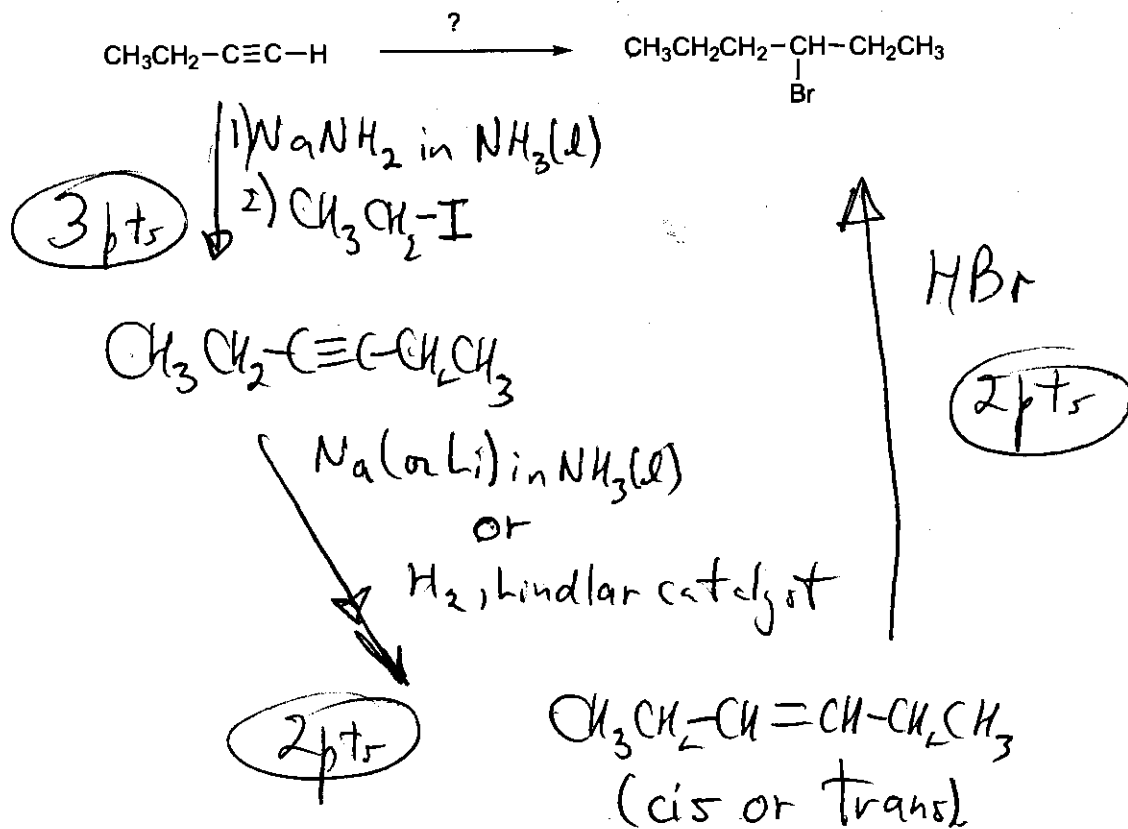 ?
CH₃CH₂−C≡C−H
CH₃CH₂CH₂−CH−CH₂CH₃
Br
1) NaNH₂ in NH₃(l)
2) CH₃CH₂-I
3pts
HBr
CH₃CH₂-C≡C-CH₂CH₃
2pts
Na (or Li) in NH₃(l)
or
H₂, Lindlar catalyst
2pts
CH₃CH₂-CH=CH-CH₂CH₃
(cis or trans)